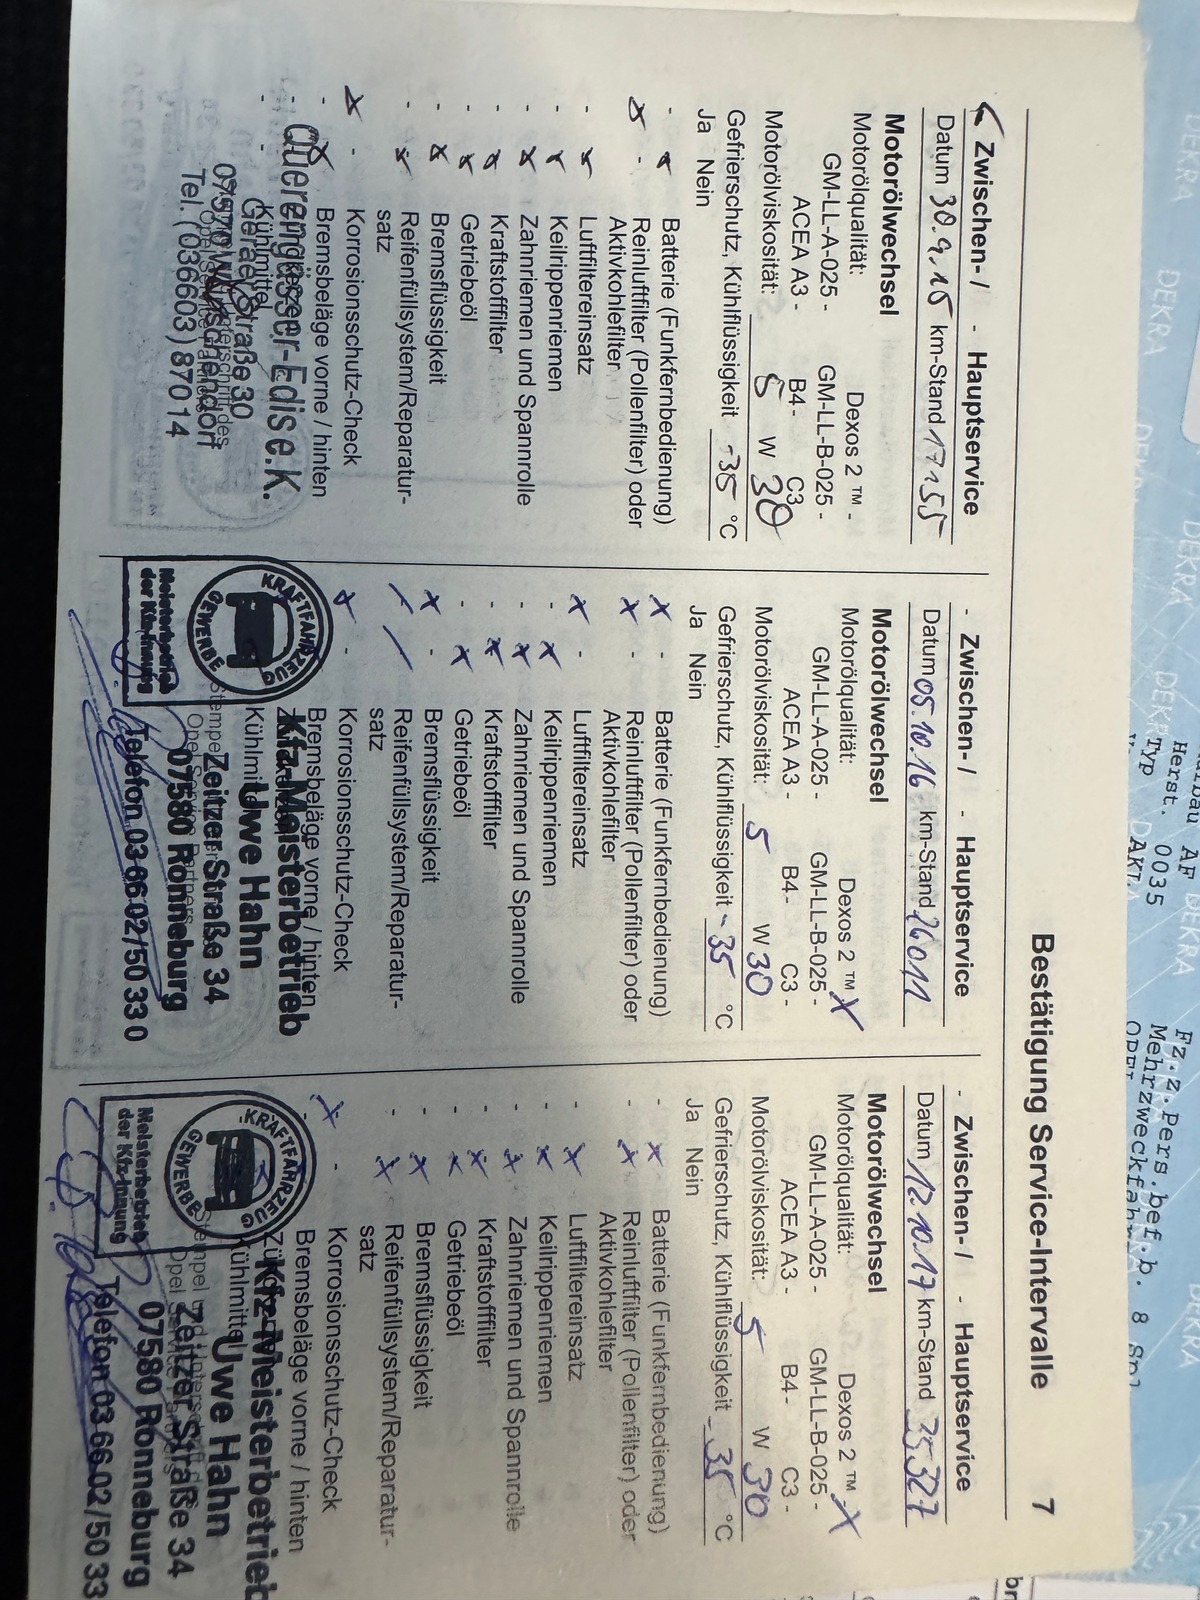 Bestätigung Service-Intervalle 7
Zwischen- / - Hauptservice
Datum 30.9.15 km-Stand 17155
Motorölwechsel
Motorölqualität: Dexos 2 ™ -
GM-LL-A-025 - GM-LL-B-025 -
ACEA A3 - B4- C3
Motorölviskosität: 5 W 30
Gefrierschutz, Kühlflüssigkeit -35 °C
Ja Nein
- x Batterie (Funkfernbedienung)
x - Reinluftfilter (Pollenfilter) oder
Aktivkohlefilter
- x Luftfiltereinsatz
- x Keilrippenriemen
- x Zahnriemen und Spannrolle
- x Kraftstofffilter
- x Getriebeöl
- x Bremsflüssigkeit
- x Reifenfüllsystem/Reparatur-
satz
x - Korrosionsschutz-Check
- x Bremsbeläge vorne / hinten
Kühlmittel
Querengässer-Edis e.K.
Geraer Straße 30
07570 Wünschendorf
Tel. (036603) 870 14
- Zwischen- / - Hauptservice
Datum 05.10.16 km-Stand 26011
Motorölwechsel
Motorölqualität: Dexos 2 ™ X
GM-LL-A-025 - GM-LL-B-025 -
ACEA A3 - B4- C3 -
Motorölviskosität: 5 W 30
Gefrierschutz, Kühlflüssigkeit -35 °C
Ja Nein
x - Batterie (Funkfernbedienung)
x - Reinluftfilter (Pollenfilter) oder
Aktivkohlefilter
x - Luftfiltereinsatz
- x Keilrippenriemen
- x Zahnriemen und Spannrolle
- x Kraftstofffilter
- x Getriebeöl
x - Bremsflüssigkeit
/ / Reifenfüllsystem/Reparatur-
satz
x - Korrosionsschutz-Check
Bremsbeläge vorne / hinten
KRAFTFAHRZEUG
GEWERBE
Meisterbetrieb
der Kfz-Innung
Kfz-Meisterbetrieb
Uwe Hahn
Zeitzer Straße 34
07580 Ronneburg
Telefon 03 66 02/50 33 0
- Zwischen- / - Hauptservice
Datum 12.10.17 km-Stand 35327
Motorölwechsel
Motorölqualität: Dexos 2 ™ X
GM-LL-A-025 - GM-LL-B-025 -
ACEA A3 - B4- C3 -
Motorölviskosität: 5 W 30
Gefrierschutz, Kühlflüssigkeit -35 °C
Ja Nein
- x Batterie (Funkfernbedienung)
- x Reinluftfilter (Pollenfilter) oder
Aktivkohlefilter
- x Luftfiltereinsatz
- x Keilrippenriemen
- x Zahnriemen und Spannrolle
- x Kraftstofffilter
- x Getriebeöl
- x Bremsflüssigkeit
- x Reifenfüllsystem/Reparatur-
satz
x - Korrosionsschutz-Check
Bremsbeläge vorne / hinten
Kühlmittel
KRAFTFAHRZEUG
GEWERBE
Meisterbetrieb
der Kfz-Innung
Kfz-Meisterbetrieb
Uwe Hahn
Zeitzer Straße 34
07580 Ronneburg
Telefon 03 66 02/50 33
Fz.z.Pers.bef.b. 8
AF Mehrzweckfahr
Herst. 0035 OPEL
Typ
DEKRA